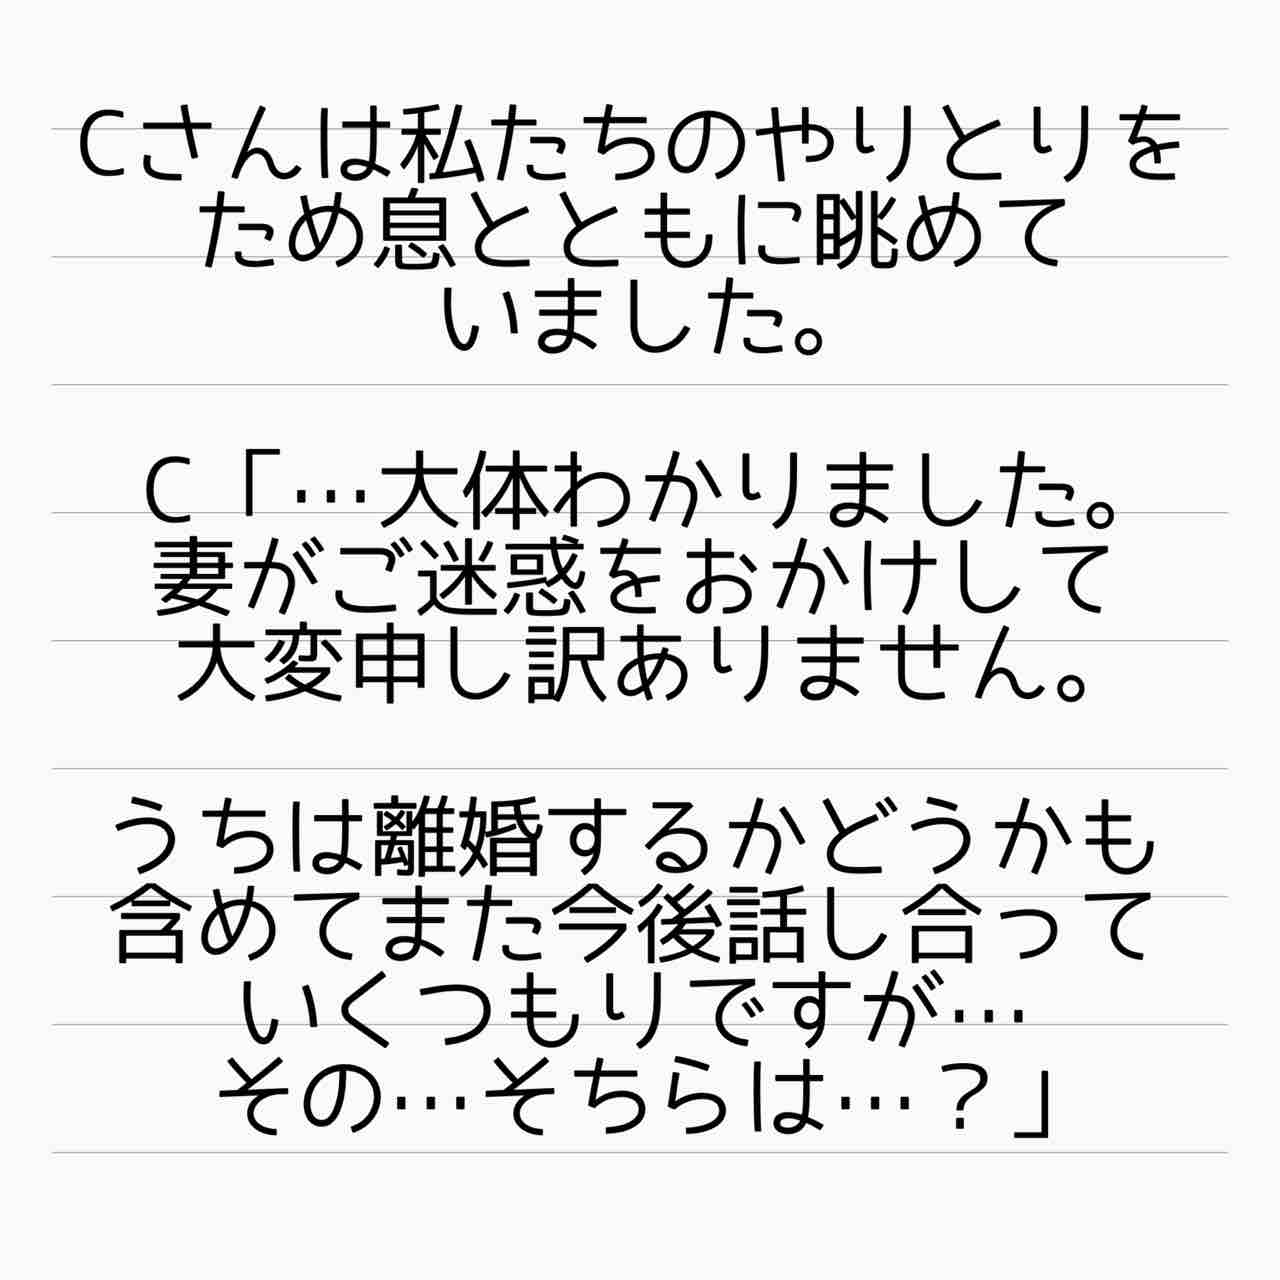 Cさんは私たちのやりとりを
ため息とともに眺めて
いました。
C「…大体わかりました。
妻がご迷惑をおかけして
大変申し訳ありません。
うちは離婚するかどうかも
含めてまた今後話し合って
いくつもりですが…
その…そちらは…？」